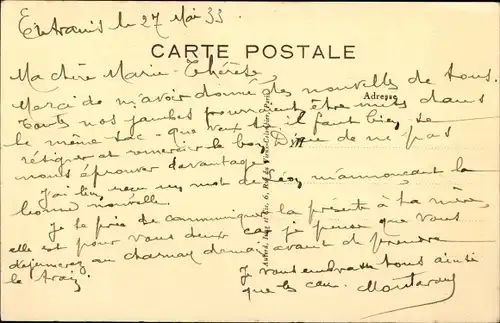 Entrains le 27 Mai 33.
CARTE POSTALE
Ma chère Marie-Thérèse,
Adresse
Merci de m'avoir donné des nouvelles de tous.
Toutes nos jambes pourraient être mises dans
le même sac - que veux-tu il faut bien se
résigner et remercier le bon Dieu de ne pas
nous éprouver davantage
J'ai bien reçu un mot de Léon m'annonçant la
bonne nouvelle.
Je te prie de communiquer la présente à ta mère,
elle est pour vous deux car je pense que vous
déjeunerez au demain avant de prendre
le train.
Je vous embrasse tous ainsi
que les